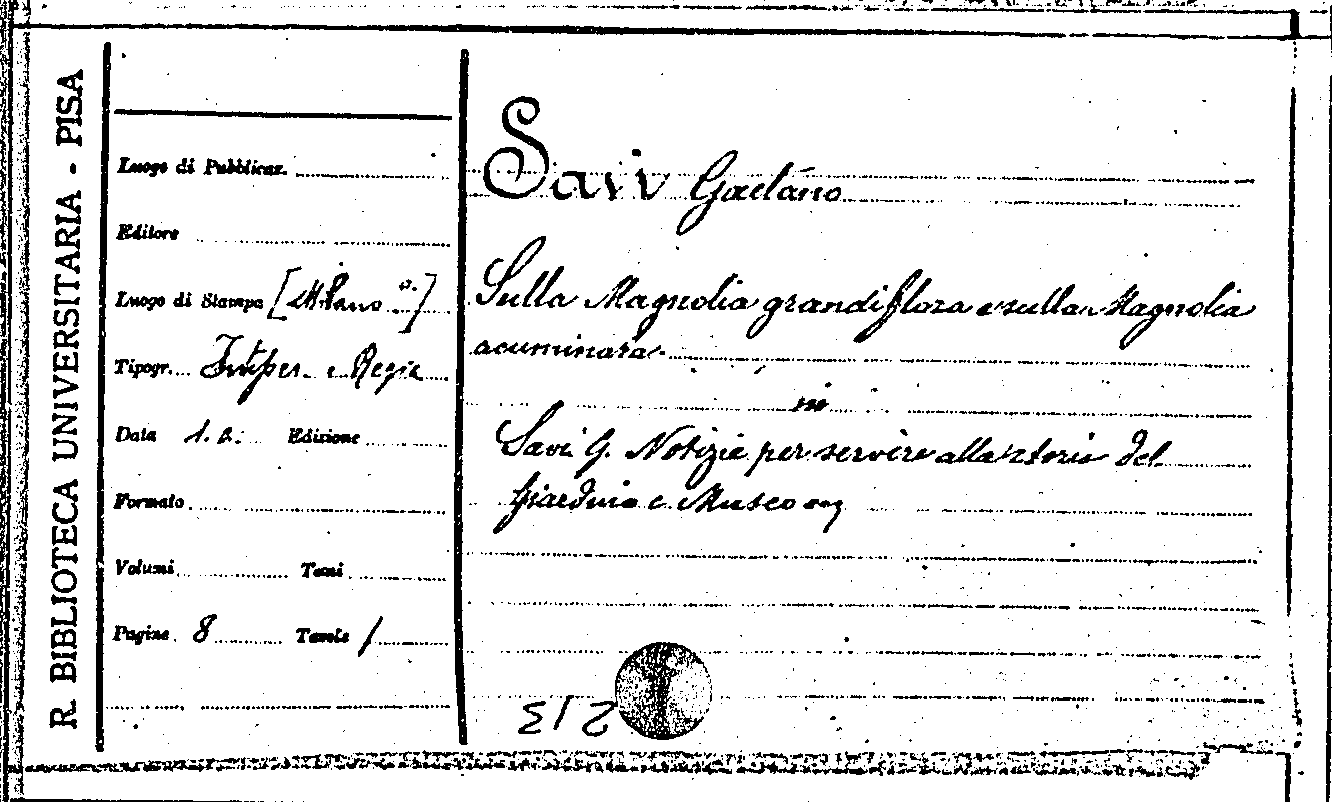 R. BIBLIOTECA UNIVERSITARIA - PISA
Luogo di Pubblicaz.
Editore
Luogo di Stampa [Milano ?]
Tipogr. Imper. e Regia
Data s. a. Edizione
Formato
Volumi Tomi
Pagine 8 Tavole 1
Savi Gaetano
Sulla Magnolia grandiflora e sulla Magnolia
acuminata.
in
Savi G. Notizie per servire alla storia del
Giardino e Museo
213